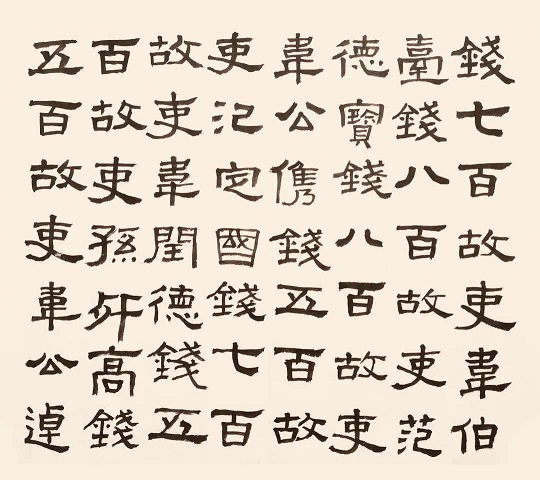 錢七百故吏韋伯
臺錢八百故吏范
德寶錢八百故吏
韋公儁錢五百故
吏氾定國錢七百
故吏韋閏德錢五
百故吏孫升高錢
五百故吏韋公逴